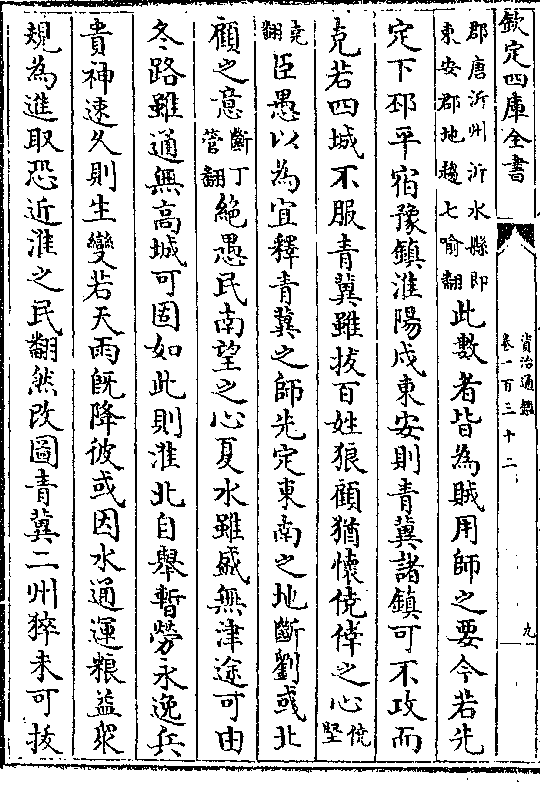 欽定四庫全書
資治通鑑
卷一百三十二
九
郡唐沂州沂水縣即
東安郡地趨七喻翻
此數者皆為賊用師之要今若先
定下邳平宿豫鎮淮陽戍東安則青冀諸鎮可不攻而
克若四城不服青冀雖拔百姓狼顧猶懷僥倖之心
僥堅
堯翻
臣愚以為宜釋青冀之師先定東南之地斷劉彧北
顧之意
斷丁
管翻
絶愚民南望之心夏水雖盛無津途可由
冬路雖通無高城可固如此則淮北自舉暫勞永逸兵
貴神速久則生變若天雨既降彼或因水通運粮益衆
規為進取恐近淮之民翻然改圖青冀二州猝未可拔